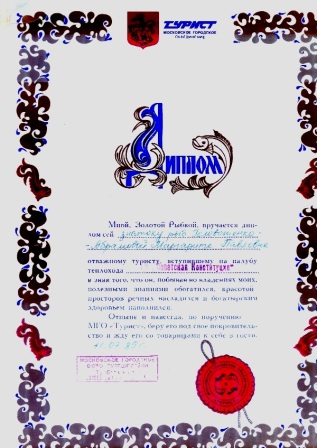 ТУРИСТ
МОСКОВСКОЕ ГОРОДСКОЕ
ДИПЛОМ
Мной, Золотой Рыбкой, вручается дип-
лом сей
Маргарите Павловне
отважному туристу, вступившему на палубу
теплохода "Советская Конституция"
в знак того, что он, побывав во владениях моих,
полезными знаниями обогатился, красотой
просторов речных насладился и богатырским
здоровьем наполнился.
Отныне и навсегда, по поручению
МГО «Турист», беру его под свое покровитель-
ство и жду его со товарищами к себе в гости.
МОСКОВСКОЕ ГОРОДСКОЕ